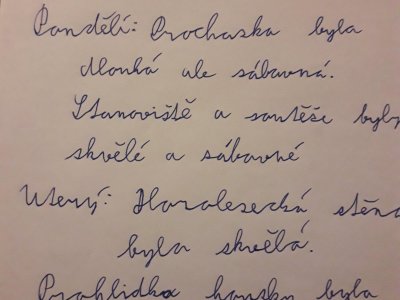 Pondělí: Prochaska byla
dlouhá ale sábavná.
Stanoviště a soutěše byly
skvělé a sábavné
Uterý: Horolesecká stěna
byla skvělá.
Prohlidka housku byla